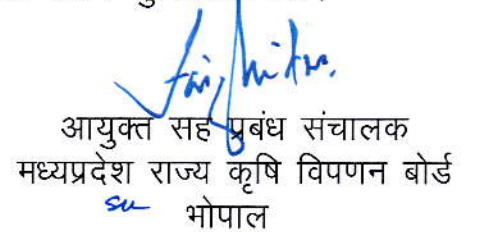 आयुक्त सह प्रबंध संचालक
मध्यप्रदेश राज्य कृषि विपणन बोर्ड
भोपाल